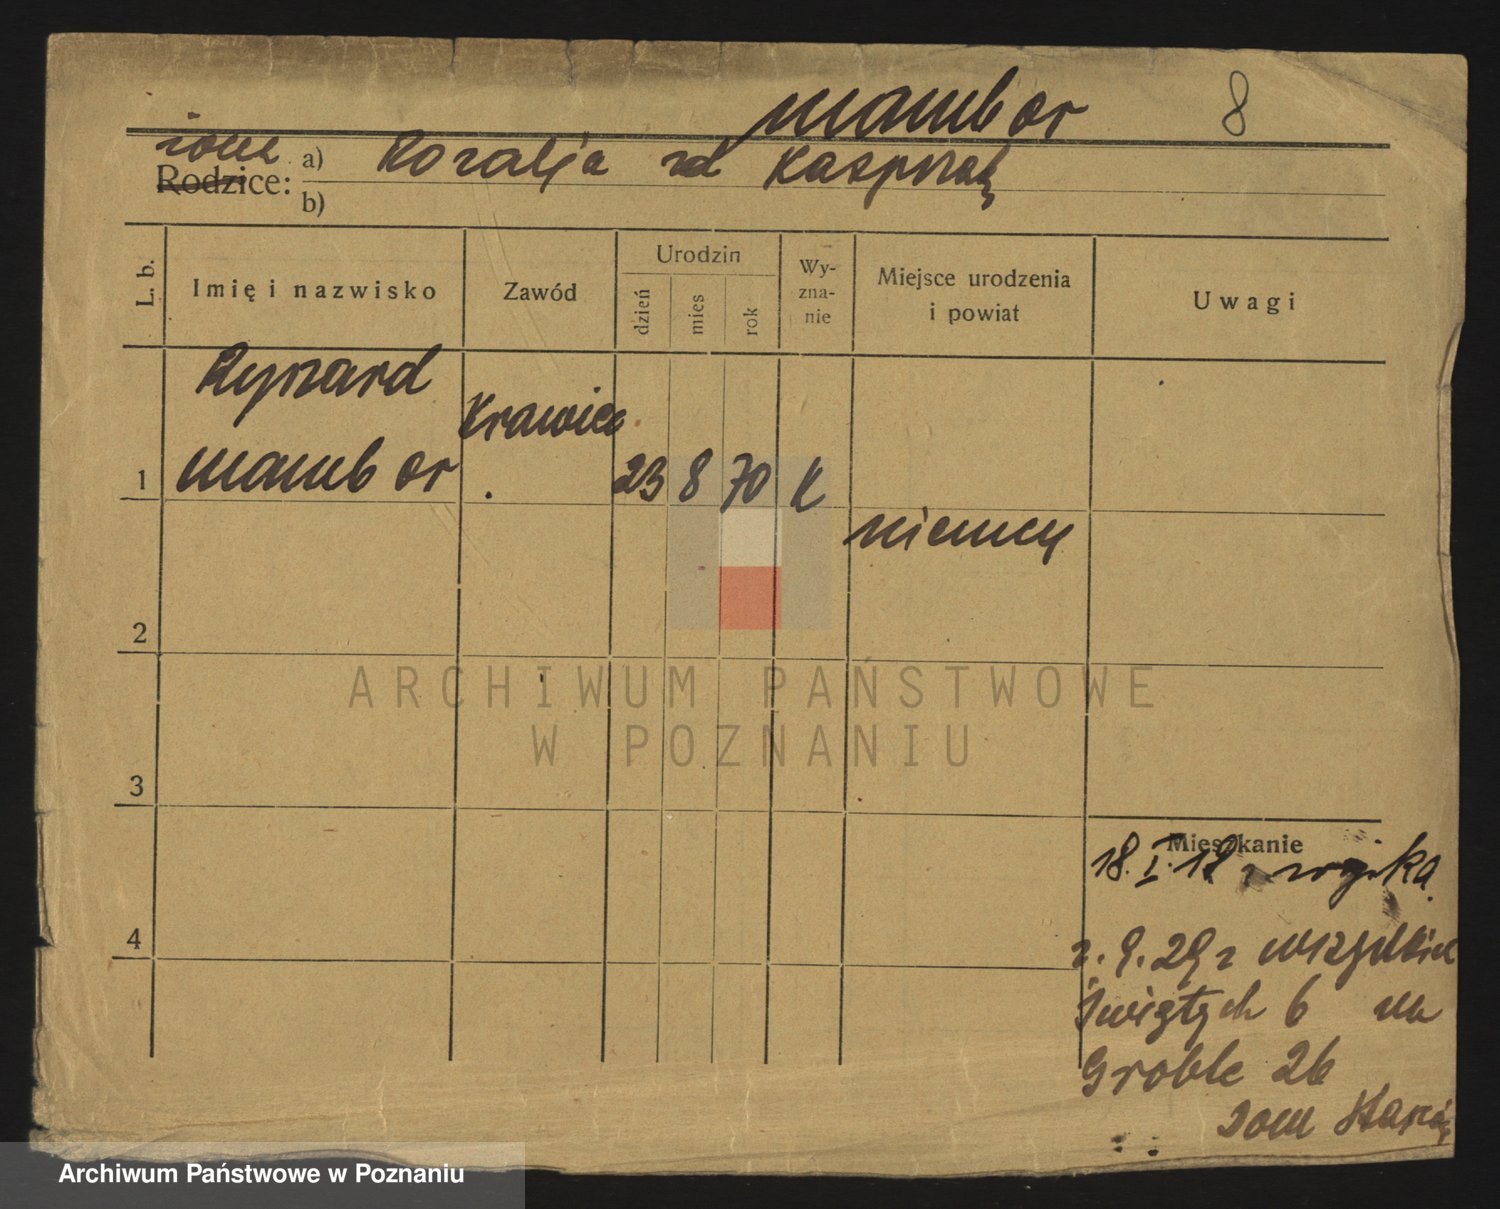 Mambor 8
żona a) Rozalja zd Kasprzak
Rodzice:
b)
L. b.
Imię i nazwisko
Zawód
Urodzin
dzień
mies
rok
Wy-
zna-
nie
Miejsce urodzenia
i powiat
Uwagi
Ryszard
Krawiec
1 Mambor 23 8 70 K
Niemcy
2
3
ARCHIWUM PAŃSTWOWE
W POZNANIU
Mieszkanie
18. I. 18 z wojska
4
z. 9. 29 z Wszystkich
Świętych 6 na
Groble 26
Dom Starców
Archiwum Państwowe w Poznaniu